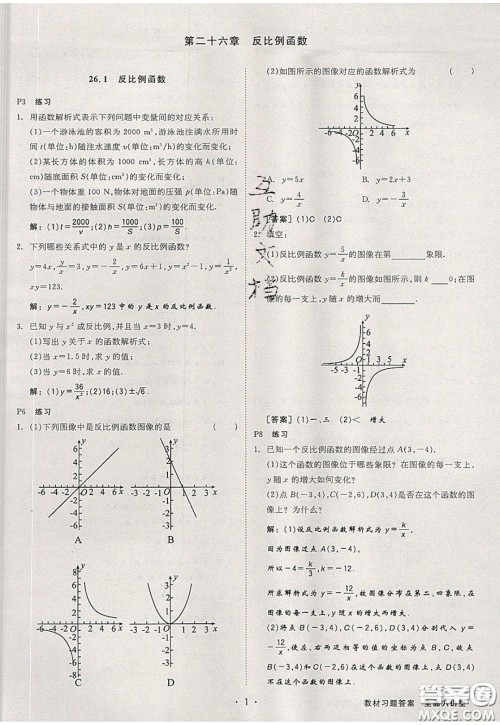 第二十六章 反比例函数
26.1 反比例函数
P3 练习
1. 用函数解析式表示下列问题中变量间的对应关系:
(1)一个游泳池的容积为 2000 m³,游泳池注满水所用时
间 t(单位:h)随注水速度 v(单位:m³/h)的变化而变化.
(2)某长方体的体积为 1000 cm³,长方体的高 h(单位:cm)
随底面积 S(单位:cm²)的变化而变化.
(3)一个物体重 100 N,物体对地面的压强 p(单位:Pa)随
物体与地面的接触面积 S(单位:m²)的变化而变化.
解:(1)t=2000/v (2)h=1000/S (3)p=100/S
2. 下列哪些关系式中的 y 是 x 的反比例函数?
y=4x, y/x=3, y=-2/x, y=6x+1, y=x²-1, y=1/x²,
xy=123.
解:y=-2/x, xy=123 中的 y 是 x 的反比例函数.
3. 已知 y 与 x² 成反比例,并且当 x=3 时,y=4.
(1)写出 y 关于 x 的函数解析式;
(2)当 x=1.5 时,求 y 的值;
(3)当 y=6 时,求 x 的值.
解:(1)y=36/x²;(2)16;(3)±√6.
P6 练习
1. (1)下列图像中是反比例函数图像的是 ( )
A B
C D
(2)如图所示的图像对应的函数解析式为 ( )
A. y=5x B. y=2x+3
C. y=4/x D. y=-3/x
[答案] (1)C (2)C
2. 填空:
(1)反比例函数 y=5/x 的图像在第 象限.
(2)反比例函数 y=k/x 的图像如图所示,则 k 0;在图
像的每一支上,y 随 x 的增大而 .
[答案] (1)一、三 (2)< 增大
P8 练习
1. 已知一个反比例函数的图像经过点 A(3,-4).
(1)这个函数的图像位于哪些象限?在图像的每一支上,
y 随 x 的增大如何变化?
(2)点 B(-3,4),C(-2,6),D(3,4)是否在这个函数的图
像上?为什么?
解:(1)设反比例函数解析式为 y=k/x,
因为图像过点 A(3,-4),
所以 -4=k/3,k=-12.
所求函数解析式为 y=-12/x,故图像分布在第二、四象限,在
图像的每一支上,y 随 x 的增大而增大.
(2)将点 B(-3,4),C(-2,6),D(3,4)分别代入 y=
-12/x,使左、右两边相等的值的坐标在这个函数的图像上,
故点 B,C 在这个函数的图像上,点 D 不在这个函数图像上.
· 1 ·
教材习题答案